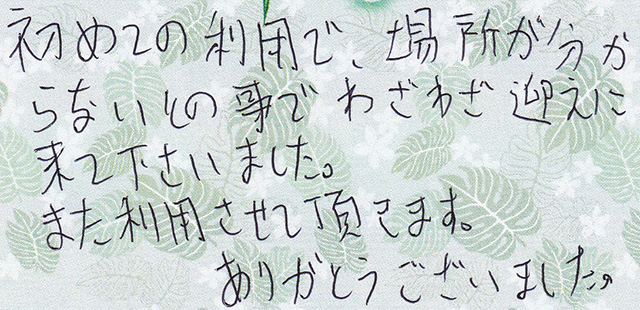 初めての利用で、場所が分か
らないとの事でわざわざ迎えに
来て下さいました。
また利用させて頂きます。
ありがとうございました。